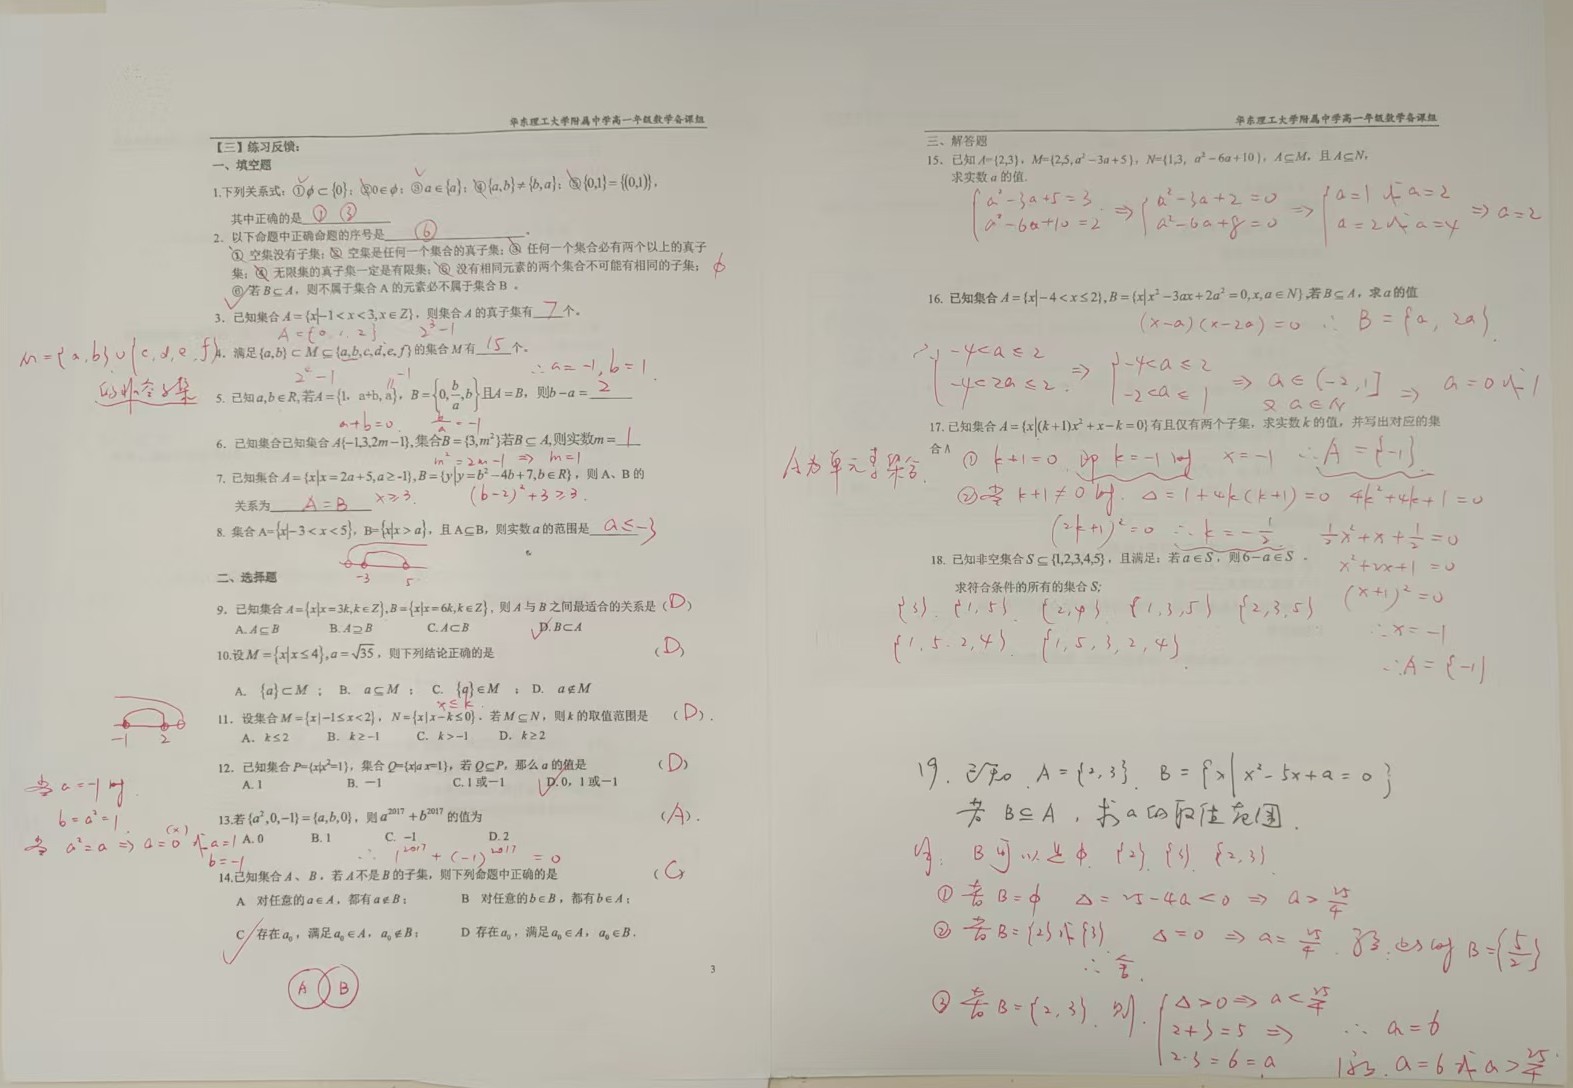 华东理工大学附属中学高一年级数学备课组
【三】练习反馈:
一、填空题
1.下列关系式:①ϕ⊂{0};②0∈ϕ;③a∈{a};④{a,b}≠{b,a};⑤{0,1}={(0,1)},
其中正确的是 ① ③
2. 以下命题中正确命题的序号是 ⑥ .
① 空集没有子集;② 空集是任何一个集合的真子集;③ 任何一个集合必有两个以上的真子
集;④ 无限集的真子集一定是有限集;⑤ 没有相同元素的两个集合不可能有相同的子集; ϕ
⑥ 若B⊆A,则不属于集合 A 的元素必不属于集合 B 。
3. 已知集合A={x|-1<x<3,x∈Z},则集合 A 的真子集有 7 个。
A={0,1,2} 2³-1
M={a,b}∪{c,d,e,f}
的非空子集
4. 满足{a,b}⊂M⊆{a,b,c,d,e,f}的集合M有 15 个。
2⁴-1 -1 ∴a=-1,b=1
5. 已知a,b∈R,若A={1, a+b, a}, B={0,b/a,b}且A=B, 则b-a= 2
a+b=0 b/a=-1
6. 已知集合已知集合A{-1,3,2m-1},集合B={3,m²}若B⊆A,则实数m= 1
m²=2m-1 ⇒ m=1
7. 已知集合A={x|x=2a+5,a≥-1},B={y|y=b²-4b+7,b∈R},则 A、B 的
关系为 A=B x≥3. (b-2)²+3≥3.
8. 集合 A={x|-3<x<5}, B={x|x>a},且 A⊆B,则实数a的范围是 a≤-3
-3 5
二、选择题
9. 已知集合A={x|x=3k,k∈Z},B={x|x=6k,k∈Z},则A与B之间最适合的关系是(D)
A.A⊆B B.A⊇B C.A⊂B D.B⊂A
10.设M={x|x≤4},a=√35,则下列结论正确的是 (D)
A. {a}⊂M ; B. a⊆M ; C. {a}∈M ; D. a∉M
x≤k
11. 设集合M={x|-1≤x<2}, N={x|x-k≤0}.若M⊆N,则k的取值范围是 (D).
A. k≤2 B. k≥-1 C. k>-1 D. k≥2
-1 2
12. 已知集合 P={x|x²=1},集合 Q={x|ax=1},若 Q⊆P,那么 a 的值是 (D)
A. 1 B. -1 C. 1 或-1 D. 0, 1 或-1
当a=-1时
b=a²=1
当 a²=a ⇒ a=0(×)或a=1
b=-1
13.若{a²,0,-1}={a,b,0},则a²⁰¹⁷+b²⁰¹⁷的值为 (A).
A. 0 B. 1 C. -1 D. 2
∴ 1²⁰¹⁷+(-1)²⁰¹⁷=0
14.已知集合A、B,若A不是B的子集,则下列命题中正确的是 (C)
A 对任意的a∈A,都有a∉B; B 对任意的b∈B,都有b∈A;
C 存在a₀,满足a₀∈A, a₀∉B; D 存在a₀,满足a₀∈A, a₀∈B.
A B
3
华东理工大学附属中学高一年级数学备课组
三、解答题
15. 已知A={2,3}, M={2,5,a²-3a+5}, N={1,3, a²-6a+10},A⊆M,且A⊆N,
求实数a的值.
{a²-3a+5=3 ⇒ {a²-3a+2=0 ⇒ {a=1或a=2
a²-6a+10=2 a²-6a+8=0 a=2或a=4 ⇒ a=2
16. 已知集合A={x|-4<x≤2},B={x|x²-3ax+2a²=0,x,a∈N},若B⊆A,求a的值
(x-a)(x-2a)=0 ∴ B={a, 2a}.
{-4<a≤2 ⇒ {-4<a≤2 ⇒ a∈(-2,1] ⇒ a=0或1
-4<2a≤2 -2<a≤1 又a∈N
17. 已知集合A={x|(k+1)x²+x-k=0}有且仅有两个子集,求实数k的值,并写出对应的集
合 A ① k+1=0 即 k=-1时 x=-1 ∴A={-1}.
A为单元素集合.
②当 k+1≠0时. Δ=1+4k(k+1)=0 4k²+4k+1=0
(2k+1)²=0 ∴k=-1/2 1/2x²+x+1/2=0
x²+2x+1=0
(x+1)²=0
∴x=-1
∴A={-1}
18. 已知非空集合S⊆{1,2,3,4,5},且满足:若a∈S,则6-a∈S .
求符合条件的所有的集合S;
{3}. {1,5}. {2,4}. {1,3,5}. {2,3,5}
{1,5.2,4}. {1,5,3,2,4}.
19. 已知 A={2,3}. B={x|x²-5x+a=0}
若B⊆A,求a的取值范围.
解: B可以是ϕ {2} {3} {2,3}
① 若B=ϕ Δ=25-4a<0 ⇒ a>25/4
② 若B={2}或{3} Δ=0 ⇒ a=25/4 此时 B={5/2}
∴舍.
③ 若B={2,3}. 则. {Δ>0⇒ a<25/4
2+3=5 ⇒ ∴ a=6
2·3=6=a
a=6或a>25/4